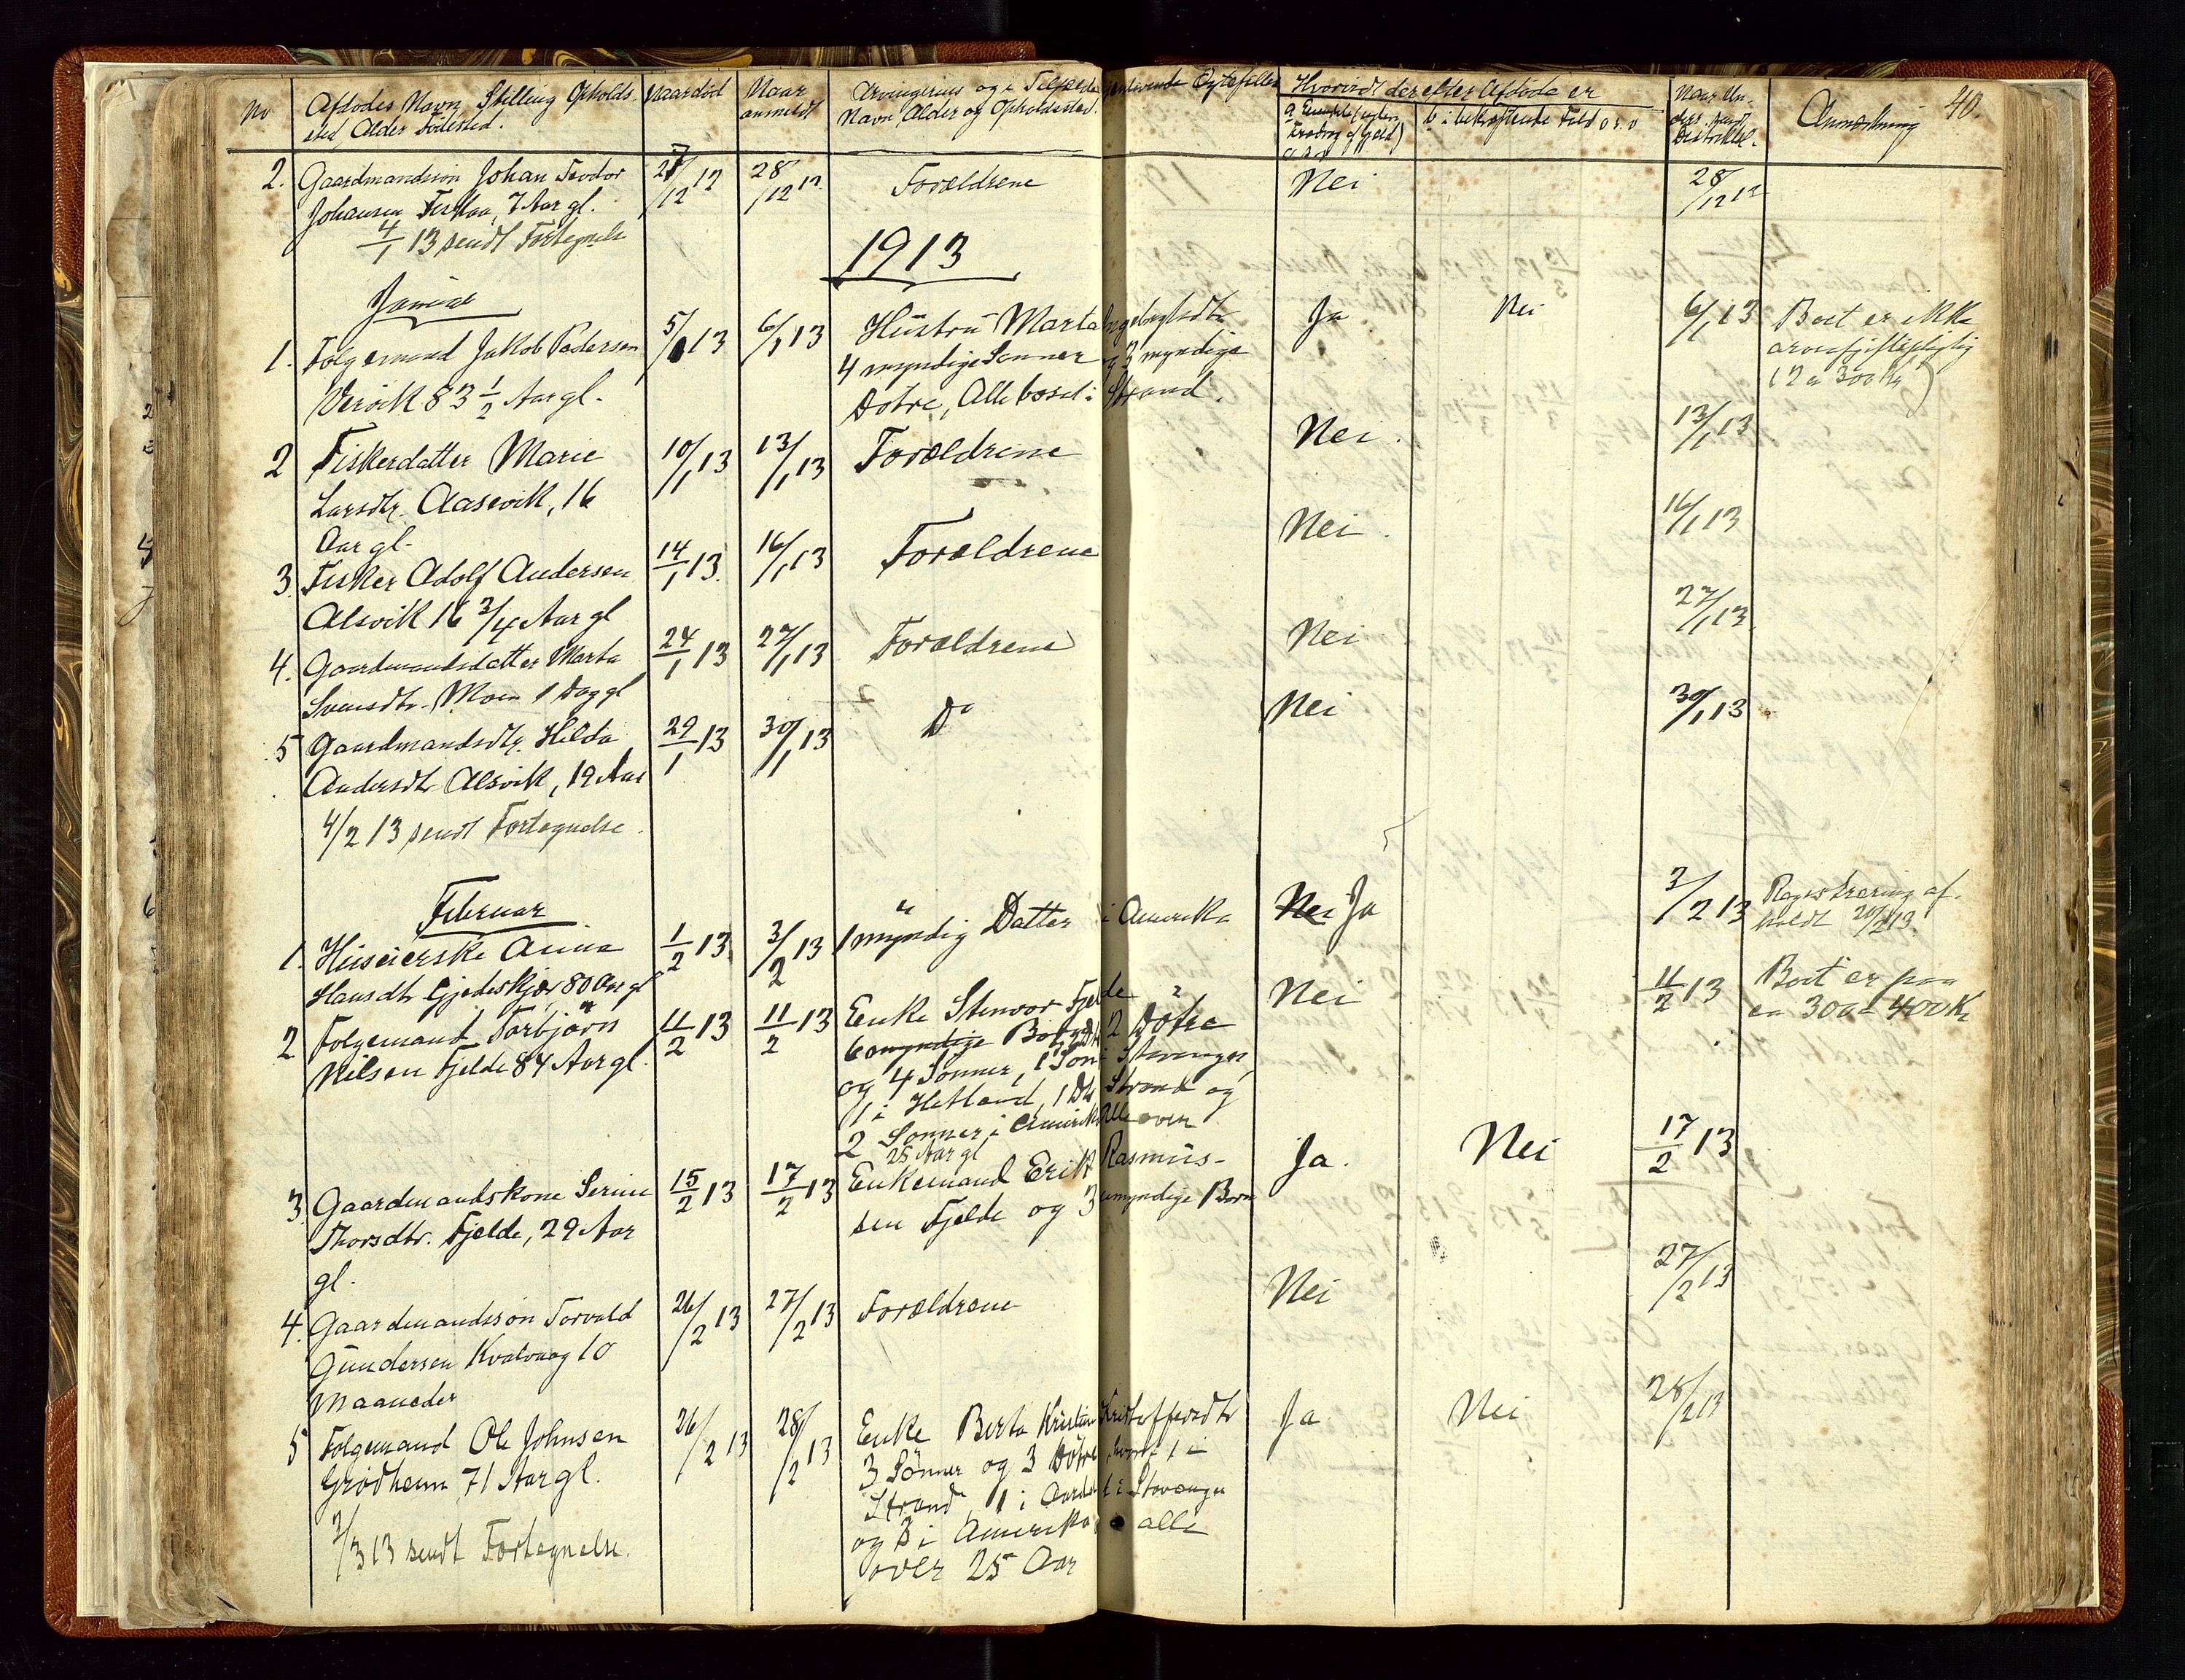 No
Afdødes Navn Stilling Opholds
sted, Alder Fødested.
Naar død
Naar
anmeldt
Arvingerne og i Tilfælde gjenlevende Ægtefælles
Navn Alder og Opholdssted.
Hvorvidt der efter Afdøde er
Anmerkning
40.
2. Gaardmandssøn Johan Teodor
Johansen Fiskaa, 7 Aar gl.
27/12 12
28/12 12
Forældrene
Nei
28/12 12
4/1 13 sendt Fortegnelse
1913
Januar
1. Følgemand Jakob Pedersen
Vervik 83 1/2 Aar gl.
5/1 13
6/1 13
Hustru Marta Ingebregtsdtr
4 myndige Sønner og 3 myndige
Døtre, Alle bosat i Strand.
Ja
Nei
6/1 13
Boet er ikke
arveafgiftspligtig
(2 a 300 Kr)
2 Fiskerdatter Marie
Larsdtr. Aasevik, 16
Aar gl.
10/1 13
13/1 13
Forældrene
Nei.
13/1 13
3. Fisker Adolf Andersen
Alsvik 16 3/4 Aar gl
14/1 13.
16/1 13
Forældrene
Nei.
16/1 13
4. Gaardmandsdatter Marta
Svensdtr. Moen 1 Dag gl
24/1 13
27/1 13
Forældrene
Nei
27/1 13
5 Gaardmandsdtr. Hilda
Andersdtr Alsvik, 19 Aar
29/1 13
30/1 13
Do
Nei
30/1 13
4/2 13 sendt Fortegnelse.
Februar
1. Huseierske Anna
Hansdtr Gjedeskjær 80 Aar gl
1/2 13.
3/2 13
1 myndig Datter i Amerika
Nei Ja
3/2 13
Registrering af-
holdt 20/2 13.
2 Følgemand Torbjørn
Nilsen Fjelde 84 Aar gl.
11/2 13
11/2 13
Enke Stenvor Fjelde
6 myndige Børn 2 Døtre
og 4 Sønner, 1 Søn i Stavanger,
1 i Hetland, 1 Dtr Strand og
2 Sønner i Amerika Alle over
25 Aar gl
Nei
11/2 13
Boet er paa
ca 300 a 400 Kr
3. Gaardmandskone Serine
Thorsdtr. Fjelde, 29 Aar
gl.
15/2 13
17/2 13
Enkemand Erik Rasmus-
sen Fjelde og 3 umyndige Børn
Ja.
Nei
17/2 13
4. Gaardmandssøn Torvald
Gundersen Kvalvaag 10
Maaneder
26/2 13
27/2 13
Forældrene
Nei
27/2 13
5 Følgemand Ole Johnsen
Grødheim 71 Aar gl.
26/2 13
28/2 13
Enke Berta Kristine Kristoffersdtr
3 Sønner og 3 Døtre, hvoraf 1 i
Strand, 1 i Aardal 1 i Stavanger
og 3 i Amerika, alle
over 25 Aar
Ja
Nei
28/2 13
3/3 13 sendt Fortegnelse.